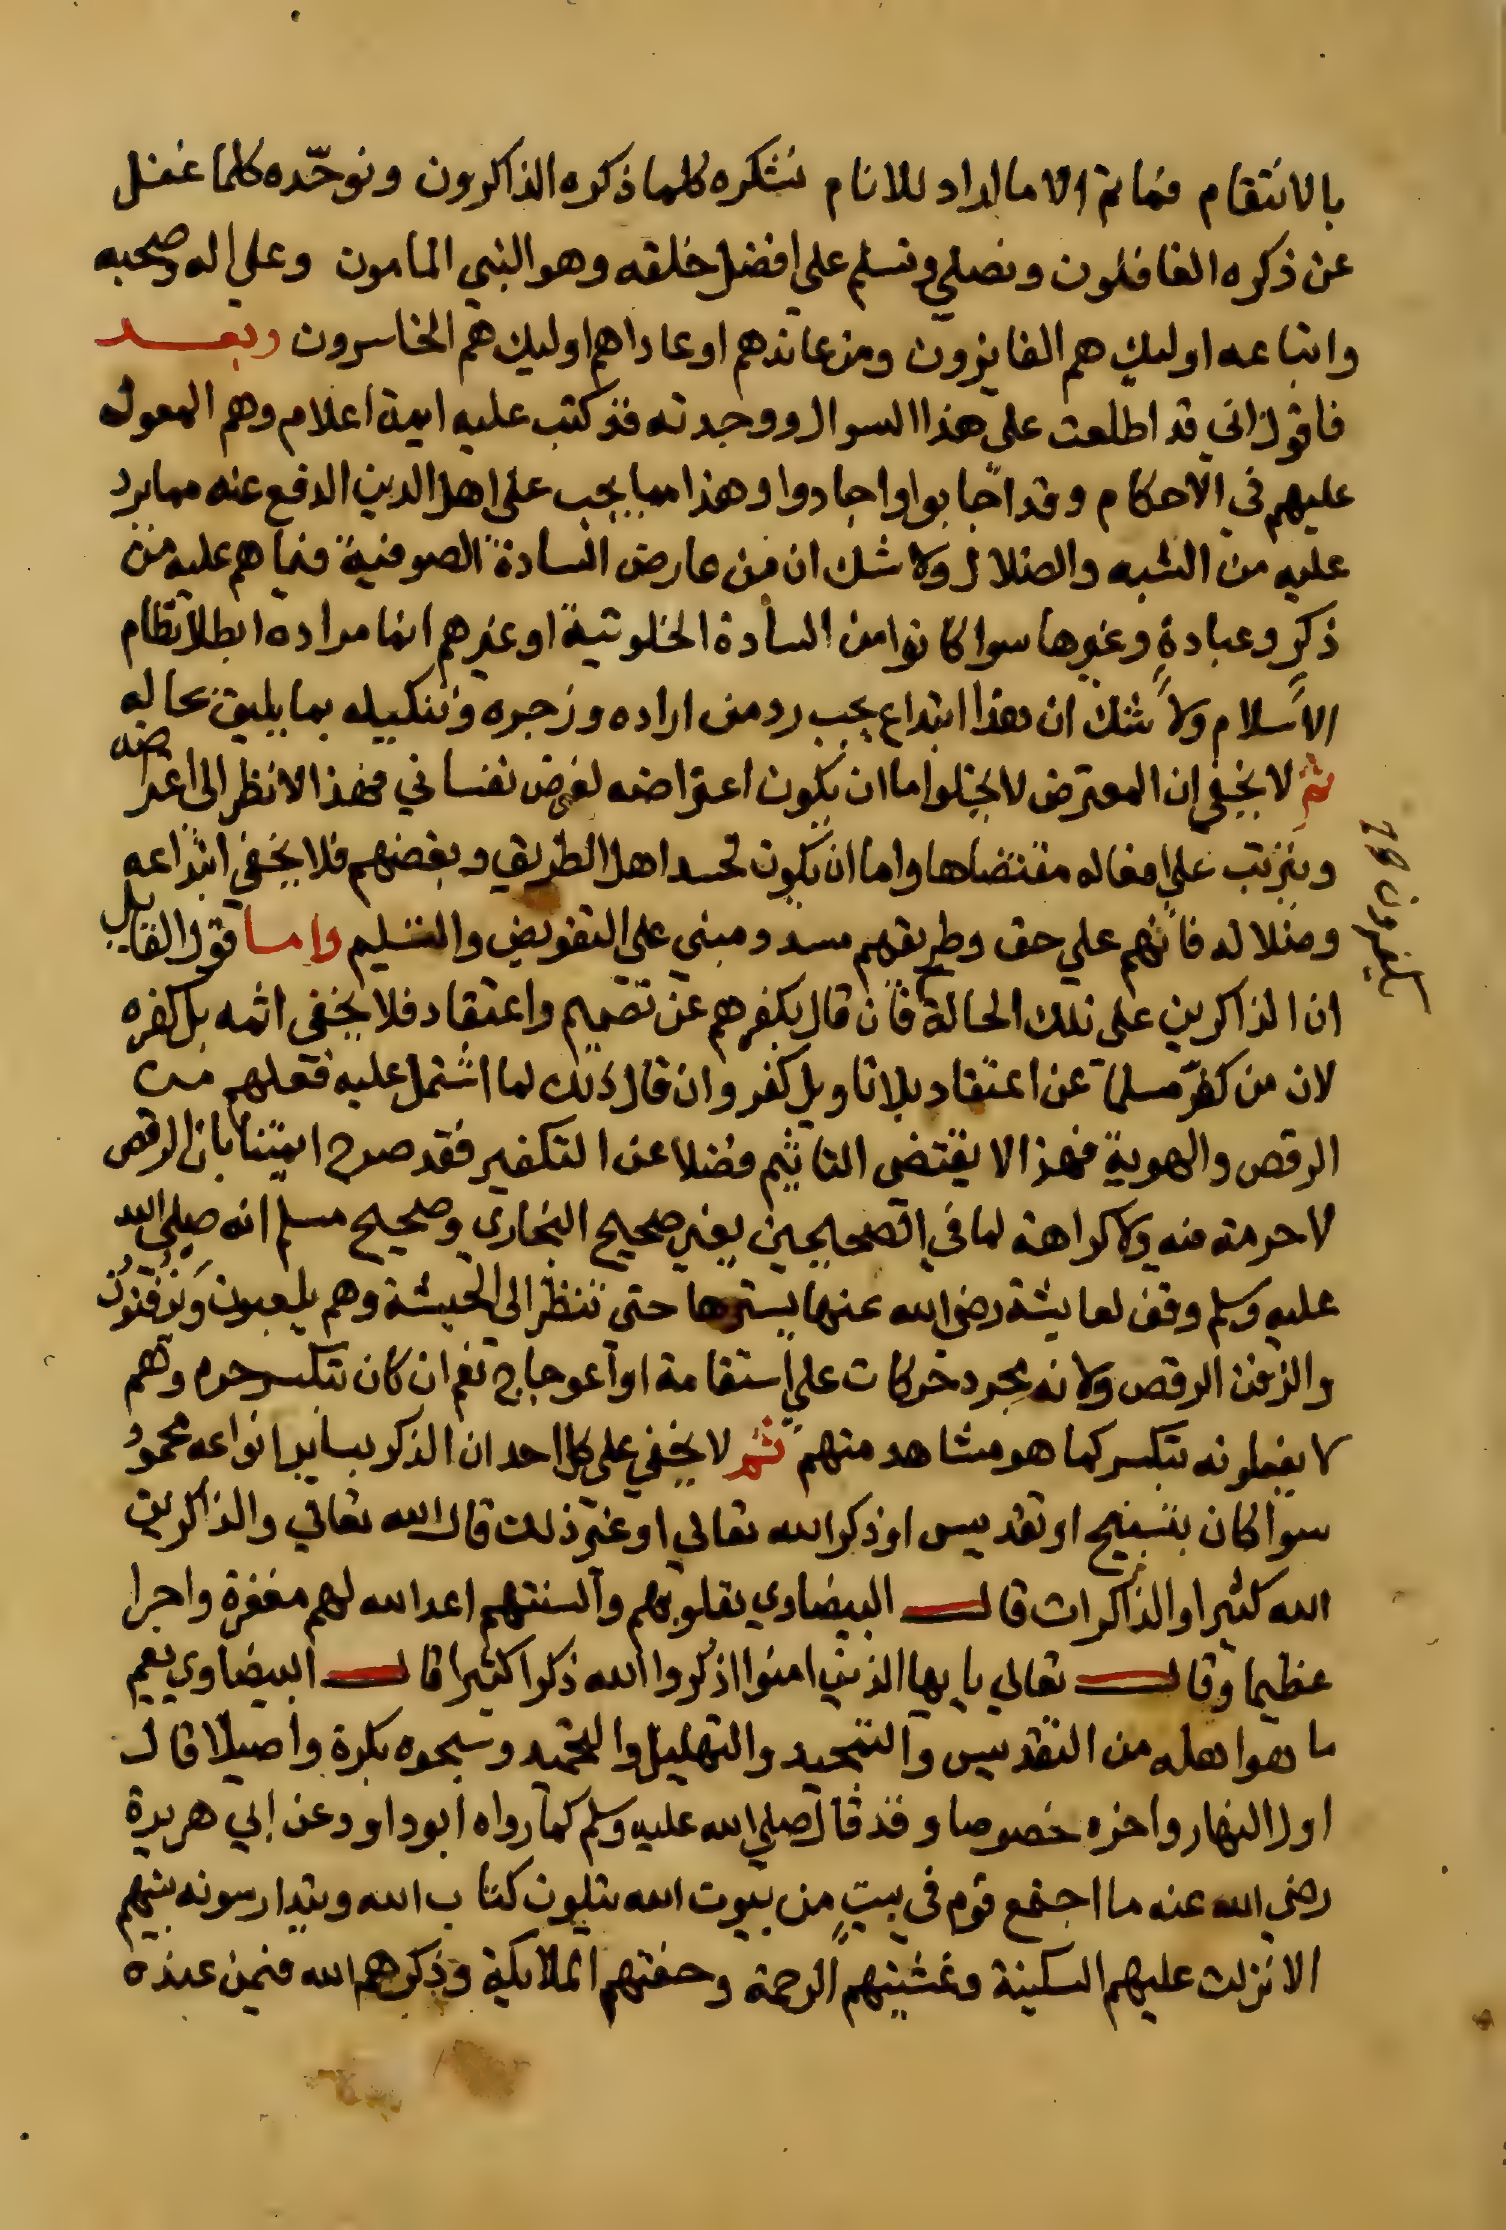 بالانتقام فما تم الا ما اراد للانام نشكره كلما ذكره الذاكرون ونوحّده كلما غفل
عن ذكره الغافلون ونصلي ونسلم على افضل خلقه وهو النبي المامون وعلى اله وصحبه
واتباعه اوليك هم الفايزون ومن عاندهم او عاداهم اوليك هم الخاسرون وبعد
فاقول اني قد اطلعت على هذا السوال ووجدته قد كتب عليه ايمة اعلام وهم المعول
عليهم في الاحكام وقد اجابوا واجادوا وهذا مما يجب على اهل الدين الدفع عنه مما يرد
عليه من الشبه والضلال ولا شك ان من عارض السادة الصوفية فيما هم عليه من
ذكرٍ وعبادةٍ وغيرها سوا كانوا من السادة الخلوتية او غيرهم انما مراده ابطال نظام
الاسلام ولا شك ان هذا ابتداع يجب رد من اراده وزجره وتنكيله بما يليق بحاله
ثم لا يخفى ان المعترض لا يخلوا اما ان يكون اعتراضه لغرض نفساني فهذا لا نظر الى اعتراضه
ويترتب على افعاله مقتضاها واما ان يكون لحسد اهل الطريق وبغضهم فلا يخفى ابتداعه
وضلاله فانهم على حق وطريقهم مسدد ومبنى على التفويض والتسليم واما قول القايل
ان الذاكرين على تلك الحالة فان قال بكفرهم عن تصميم واعتقاد فلا يخفى اثمه بل كفره
لان من كفّر مسلما عن اعتقاد بلا تاويل كفر وان قال ذلك لما اشتمل عليه فعلهم من
الرقص والهوية فهذا لا يقتضى التاثيم فضلا عن التكفير فقد صرح ايمتنا بان الرقص
لا حرمة فيه ولا كراهة لما في الصحيحين يعني صحيح البخاري وصحيح مسلم انه صلى الله
عليه وسلم وقف لعايشة رضى الله عنها يسترها حتى تنظر الى الحبشة وهم يلعبون ويزفنون
والزفن الرقص ولانه مجرد حركات على استقامة او اعوجاج نعم ان كان بتكسر حرم وهم
لا يفعلونه بتكسر كما هو مشاهد منهم ثم لا يخفى على كل احد ان الذكر بساير انواعه محمود
سوا كان بتسبيح او تقديس او ذكر الله تعالى او غير ذلك قال الله تعالى والذاكرين
الله كثيرا والذاكرات قال البيضاوي بقلوبهم والسنتهم اعد الله لهم مغفرة واجرا
عظيما وقال تعالى يا يها الذين امنوا اذكروا الله ذكرا كثيرا قال البيضاوي يعم
ما هو اهله من التقديس والتمجيد والتهليل والتحميد وسبحوه بكرة واصيلا قال
اول النهار واخره خصوصا وقد قال صلى الله عليه وسلم كما رواه ابو داود عن ابي هريرة
رضي الله عنه ما اجتمع قوم في بيتٍ من بيوت الله يتلون كتاب الله ويتدارسونه بينهم
الا نزلت عليهم السكينة وغشيتهم الرحمة وحفتهم الملايكة وذكرهم الله فيمن عنده